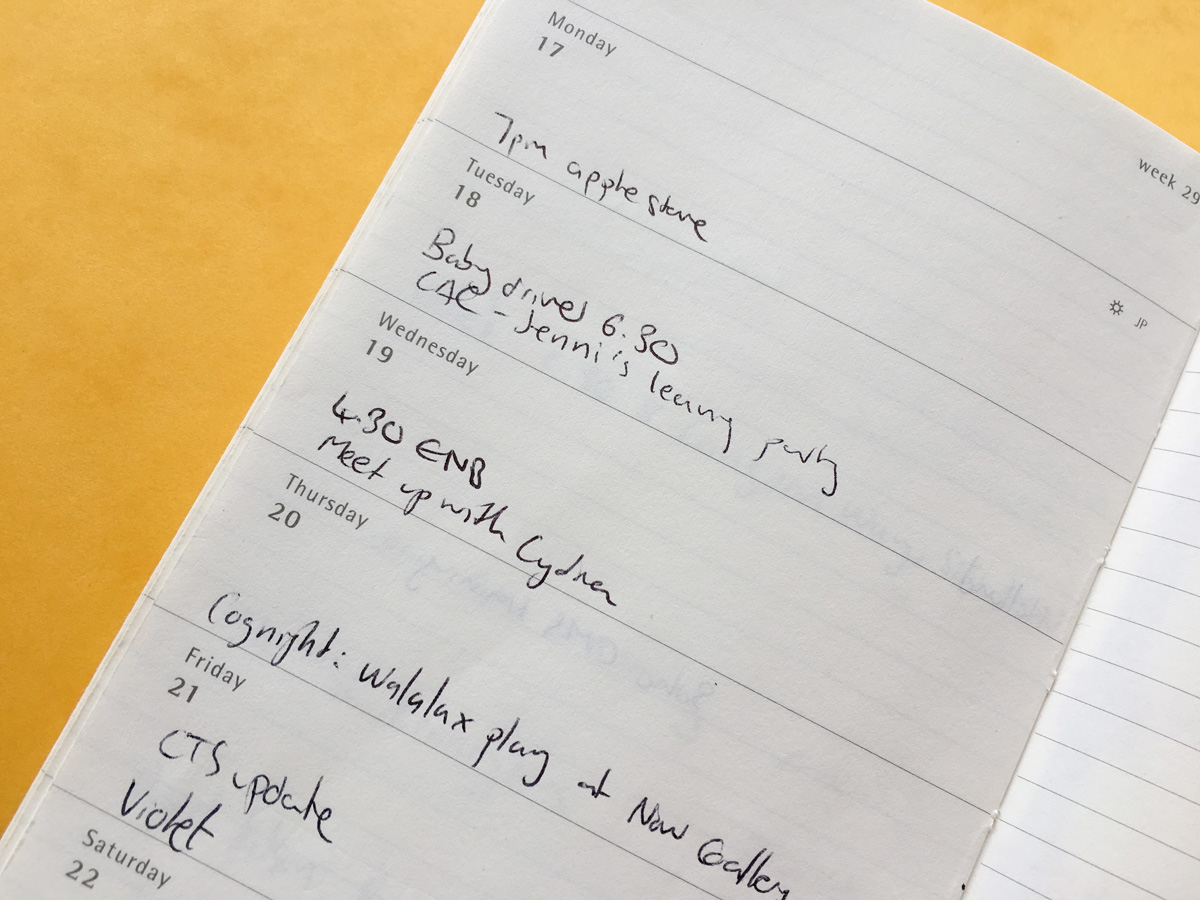 Monday
17
week 29
7pm apple store
Tuesday
18
☼ JP
Baby driver 6.30
CAC - Jenni's leaving party
Wednesday
19
4.30 ENB
Meet up with
Thursday
20
Cognight: Walalax play at Now Gallery
Friday
21
CTS update
Violet
Saturday
22